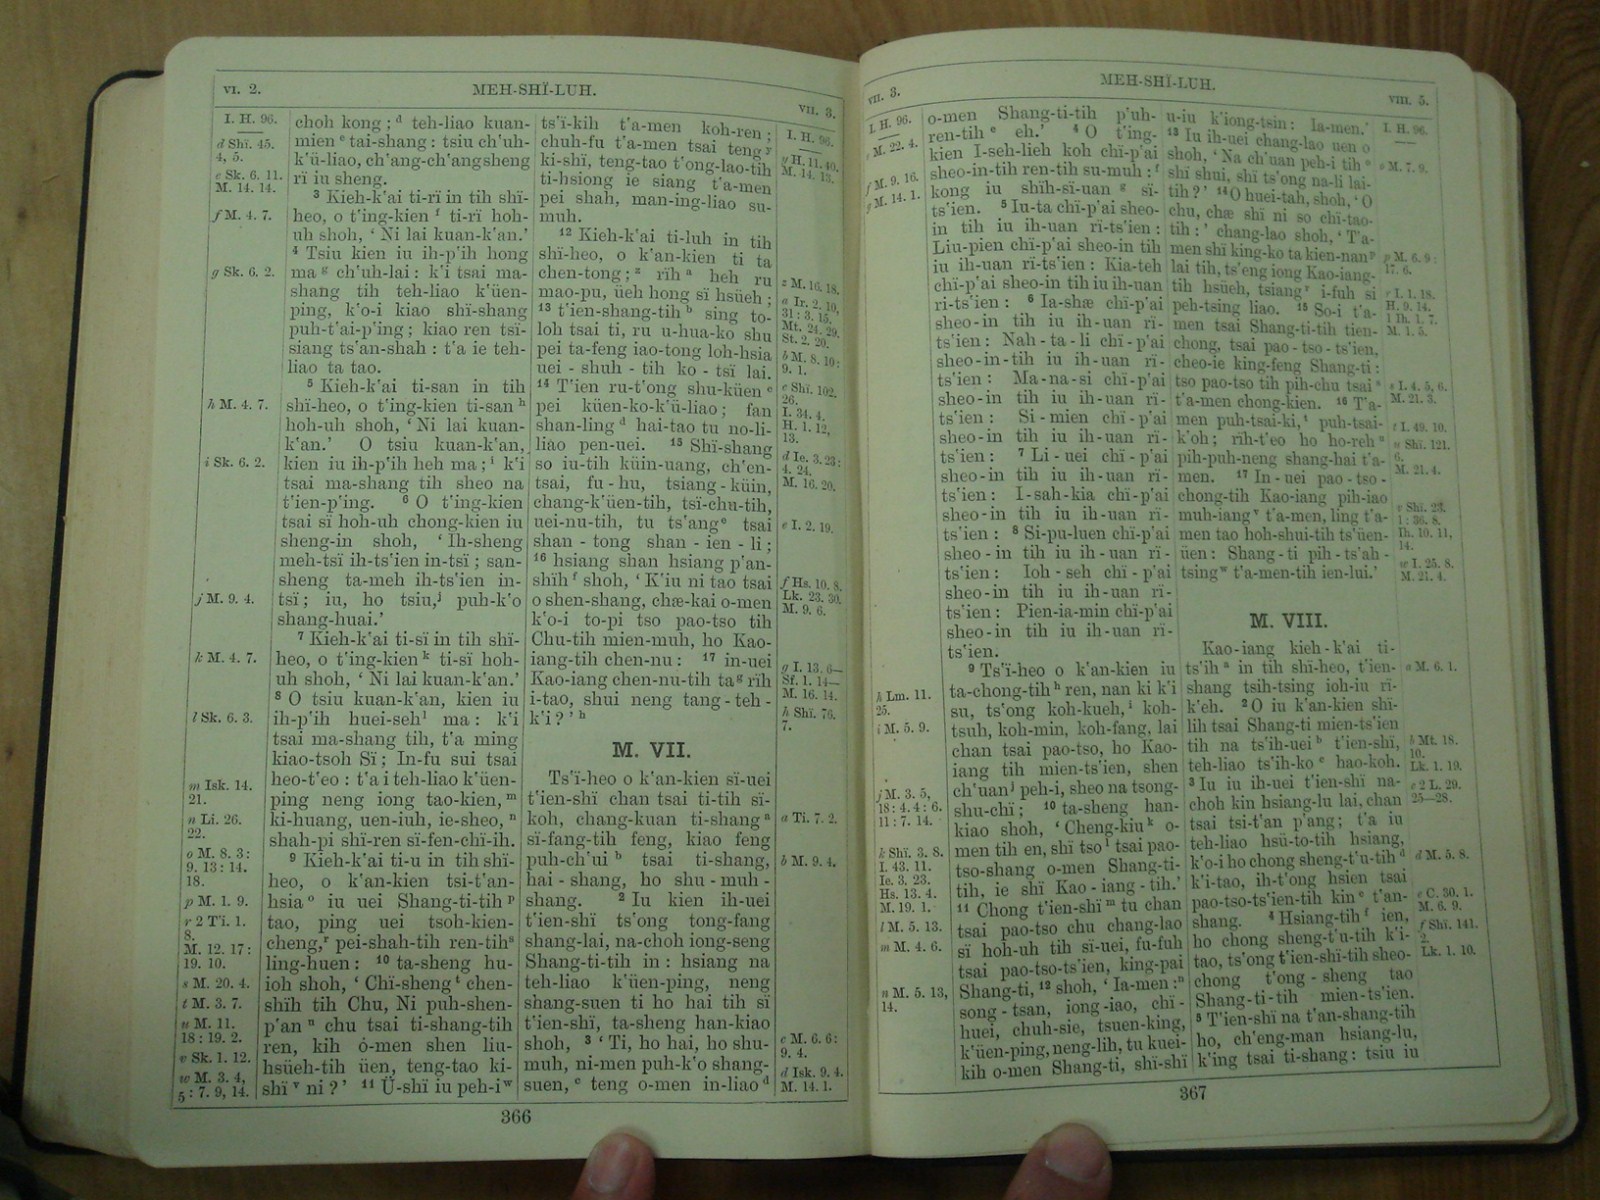 VI. 2.
MEH-SHÏ-LUH.
VII. 3.
I. H. 96.
d Shï. 45.
4, 5.
e Sk. 6. 11.
M. 14. 14.
f M. 4. 7.
g Sk. 6. 2.
h M. 4. 7.
i Sk. 6. 2.
j M. 9. 4.
k M. 4. 7.
l Sk. 6. 3.
m Isk. 14.
21.
n Li. 26.
22.
o M. 8. 3:
9. 13: 14.
18.
p M. 1. 9.
r 2 T'ï. 1.
8.
M. 12. 17:
19. 10.
s M. 20. 4.
t M. 3. 7.
u M. 11.
18: 19. 2.
v Sk. 1. 12.
w M. 3. 4,
5: 7. 9, 14.
choh kong; ᵈ teh-liao kuan-
mien ᵉ tai-shang: tsiu ch'uh-
k'ü-liao, ch'ang-ch'angsheng
rï iu sheng.
³ Kieh-k'ai ti-rï in tih shï-
heo, o t'ing-kien ᶠ ti-rï hoh-
uh shoh, ' Ni lai kuan-k'an.'
⁴ Tsiu kien iu ih-p'ih hong
ma ᵍ ch'uh-lai: k'i tsai ma-
shang tih teh-liao k'üen-
ping, k'o-i kiao shï-shang
puh-t'ai-p'ing; kiao ren tsï-
siang ts'an-shah: t'a ie teh-
liao ta tao.
⁵ Kieh-k'ai ti-san in tih
shï-heo, o t'ing-kien ti-san ʰ
hoh-uh shoh, ' Ni lai kuan-
k'an.' O tsiu kuan-k'an,
kien iu ih-p'ih heh ma; ⁱ k'i
tsai ma-shang tih sheo na
t'ien-p'ing. ⁶ O t'ing-kien
tsai sï hoh-uh chong-kien iu
sheng-in shoh, ' Ih-sheng
meh-tsï ih-ts'ien in-tsï; san-
sheng ta-meh ih-ts'ien in-
tsï; iu, ho tsiu,ʲ puh-k'o
shang-huai.'
⁷ Kieh-k'ai ti-sï in tih shï-
heo, o t'ing-kien ᵏ ti-sï hoh-
uh shoh, ' Ni lai kuan-k'an.'
⁸ O tsiu kuan-k'an, kien iu
ih-p'ih huei-seh ˡ ma: k'i
tsai ma-shang tih, t'a ming
kiao-tsoh Sï; In-fu sui tsai
heo-t'eo: t'a i teh-liao k'üen-
ping neng iong tao-kien, ᵐ
ki-huang, uen-iuh, ie-sheo, ⁿ
shah-pi shï-ren sï-fen-chï-ih.
⁹ Kieh-k'ai ti-u in tih shï-
heo, o k'an-kien tsi-t'an-
hsia ᵒ iu uei Shang-ti-tih ᵖ
tao, ping uei tsoh-kien-
cheng,ʳ pei-shah-tih ren-tih ˢ
ling-huen: ¹⁰ ta-sheng hu-
ioh shoh, ' Chï-sheng ᵗ chen-
shïh tih Chu, Ni puh-shen-
p'an ᵘ chu tsai ti-shang-tih
ren, kih o-men shen liu-
hsüeh-tih üen, teng-tao ki-
shï ᵛ ni?' ¹¹ Ü-shï iu peh-i ʷ
ts'ï-kih t'a-men koh-ren;
chuh-fu t'a-men tsai teng ʸ
ki-shï, teng-tao t'ong-lao-tih
ti-hsiong ie siang t'a-men
pei shah, man-ing-liao su-
muh.
¹² Kieh-k'ai ti-luh in tih
shï-heo, o k'an-kien ti ta
chen-tong; ᶻ rïh ᵃ heh ru
mao-pu, üeh hong sï hsüeh;
¹³ t'ien-shang-tih ᵇ sing to-
loh tsai ti, ru u-hua-ko shu
pei ta-feng iao-tong loh-hsia
uei-shuh-tih ko-tsï lai.
¹⁴ T'ien ru-t'ong shu-küen ᶜ
pei küen-ko-k'ü-liao; fan
shan-ling ᵈ hai-tao tu no-li-
liao pen-uei. ¹⁵ Shï-shang
so iu-tih küin-uang, ch'en-
tsai, fu-hu, tsiang-küin,
chang-k'üen-tih, tsï-chu-tih,
uei-nu-tih, tu ts'ang ᵉ tsai
shan-tong shan-ien-li;
¹⁶ hsiang shan hsiang p'an-
shïh ᶠ shoh, ' K'iu ni tao tsai
o shen-shang, chæ-kai o-men
k'o-i to-pi tso pao-tso tih
Chu-tih mien-muh, ho Kao-
iang-tih chen-nu: ¹⁷ in-uei
Kao-iang chen-nu-tih ta ᵍ rïh
i-tao, shui neng tang-teh-
k'i?' ʰ
M. VII.
Ts'ï-heo o k'an-kien sï-uei
t'ien-shï chan tsai ti-tih sï-
koh, chang-kuan ti-shang ᵃ
sï-fang-tih feng, kiao feng
puh-ch'ui ᵇ tsai ti-shang,
hai-shang, ho shu-muh-
shang. ² Iu kien ih-uei
t'ien-shï ts'ong tong-fang
shang-lai, na-choh iong-seng
Shang-ti-tih in: hsiang na
teh-liao k'üen-ping, neng
shang-suen ti ho hai tih sï
t'ien-shï, ta-sheng han-kiao
shoh, ³ ' Ti, ho hai, ho shu-
muh, ni-men puh-k'o shang-
suen, ᶜ teng o-men in-liao ᵈ
I. H. 96.
y H. 11. 40.
M. 14. 13.
z M. 16. 18.
a Ir. 2. 10,
31: 3. 15.
Mt. 24. 29.
St. 2. 20.
b M. 8. 10:
9. 1.
c Shï. 102.
26.
I. 34. 4.
H. 1. 12,
13.
d Ie. 3. 23:
4. 24.
M. 16. 20.
e I. 2. 19.
f Hs. 10. 8.
Lk. 23. 30.
M. 9. 6.
g I. 13. 6—
Sf. 1. 14—
M. 16. 14.
h Shï. 76.
7.
a Ti. 7. 2.
b M. 9. 4.
c M. 6. 6:
9. 4.
d Isk. 9. 4.
M. 14. 1.
366
VII. 3.
MEH-SHÏ-LUH.
VIII. 5.
I. H. 96.
e M. 22. 4.
f M. 9. 16.
g M. 14. 1.
h Lm. 11.
25.
i M. 5. 9.
j M. 3. 5,
18: 4. 4: 6.
11: 7. 14.
k Shï. 3. 8.
I. 43. 11.
Ie. 3. 23.
Hs. 13. 4.
M. 19. 1.
l M. 5. 13.
m M. 4. 6.
n M. 5. 13,
14.
o-men Shang-ti-tih p'uh-
ren-tih ᵉ eh.' ⁴ O t'ing-
kien I-seh-lieh koh chï-p'ai
sheo-in-tih ren-tih su-muh: ᶠ
kong iu shïh-sï-uan ᵍ sï-
ts'ien. ⁵ Iu-ta chï-p'ai sheo-
in tih iu ih-uan rï-ts'ien:
Liu-pien chï-p'ai sheo-in tih
iu ih-uan rï-ts'ien: Kia-teh
chï-p'ai sheo-in tih iu ih-uan
ri-ts'ien: ⁶ Ia-shæ chï-p'ai
sheo-in tih iu ih-uan rï-
ts'ien: Nah-ta-li chï-p'ai
sheo-in-tih iu ih-uan rï-
ts'ien: Ma-na-si chï-p'ai
sheo-in tih iu ih-uan rï-
ts'ien: Si-mien chï-p'ai
sheo-in tih iu ih-uan rï-
ts'ien: ⁷ Li-uei chï-p'ai
sheo-in tih iu ih-uan rï-
ts'ien: I-sah-kia chï-p'ai
sheo-in tih iu ih-uan rï-
ts'ien: ⁸ Si-pu-luen chï-p'ai
sheo-in tih iu ih-uan rï-
ts'ien: Ioh-seh chï-p'ai
sheo-in tih iu ih-uan rï-
ts'ien: Pien-ia-min chï-p'ai
sheo-in tih iu ih-uan rï-
ts'ien.
⁹ Ts'ï-heo o k'an-kien iu
ta-chong-tih ʰ ren, nan ki k'i
su, ts'ong koh-kueh, ⁱ koh-
tsuh, koh-min, koh-fang, lai
chan tsai pao-tso, ho Kao-
iang tih mien-ts'ien, shen
ch'uan ʲ peh-i, sheo na tsong-
shu-chï; ¹⁰ ta-sheng han-
kiao shoh, ' Cheng-kiu ᵏ o-
men tih en, shï tso ˡ tsai pao-
tso-shang o-men Shang-ti-
tih, ie shï Kao-iang-tih.'
¹¹ Chong t'ien-shï ᵐ tu chan
tsai pao-tso chu chang-lao
sï hoh-uh tih sï-uei, fu-fuh
tsai pao-tso-ts'ien, king-pai
Shang-ti, ¹² shoh, ' Ia-men: ⁿ
song-tsan, iong-iao, chï-
huei, chuh-sie, tsuen-king,
k'üen-ping, neng-lih, tu kuei-
kih o-men Shang-ti, shï-shï
u-iu k'iong-tsin: Ia-men.'
¹³ Iu ih-uei chang-lao uen o
shoh, ' Na ch'uan peh-i tih ᵒ
shï shui, shï ts'ong na-li lai-
tih?' ¹⁴ O huei-tah, shoh, ' O
chu, chæ shï ni so chï-tao-
tih:' chang-lao shoh, ' T'a-
men shï king-ko ta kien-nan ᵖ
lai tih, ts'eng iong Kao-iang-
tih hsüeh, tsiang ʳ i-fuh si
peh-tsing liao. ¹⁵ So-i t'a-
men tsai Shang-ti-tih tien-
chong, tsai pao-tso-ts'ien,
cheo-ie king-feng Shang-ti:
tso pao-tso tih pih-chu tsai ˢ
t'a-men chong-kien. ¹⁶ T'a-
men puh-tsai-ki, ᵗ puh-tsai-
k'oh; rïh-t'eo ho ho-reh ᵘ
pih-puh-neng shang-hai t'a-
men. ¹⁷ In-uei pao-tso-
chong-tih Kao-iang pih-iao
muh-iang ᵛ t'a-men, ling t'a-
men tao hoh-shui-tih ts'üen-
üen: Shang-ti pih-ts'ah-
tsing ʷ t'a-men-tih ien-lui.'
M. VIII.
Kao-iang kieh-k'ai ti-
ts'ih ᵃ in tih shï-heo, t'ien-
shang tsih-tsing ioh-iu rï-
k'eh. ² O iu k'an-kien shï-
lih tsai Shang-ti mien-ts'ien
tih na ts'ih-uei ᵇ t'ien-shï,
teh-liao ts'ih-ko ᶜ hao-koh.
³ Iu iu ih-uei t'ien-shï na-
choh kin hsiang-lu lai, chan
tsai tsi-t'an p'ang; t'a iu
teh-liao hsü-to-tih hsiang,
k'o-i ho chong sheng-t'u-tih ᵈ
k'i-tao, ih-t'ong hsien tsai
pao-tso-ts'ien-tih kin ᵉ t'an-
shang. ⁴ Hsiang-tih ᶠ ien,
ho chong sheng-t'u-tih k'i-
tao, ts'ong t'ien-shï-tih sheo-
chong t'ong-sheng tao
Shang-ti-tih mien-ts'ien.
⁵ T'ien-shï na t'an-shang-tih
ho, ch'eng-man hsiang-lu,
k'ing tsai ti-shang: tsiu iu
I. H. 96.
o M. 7. 9.
p M. 6. 9:
17. 6.
r I. 1. 18.
H. 9. 14.
1 Ih. 1. 7.
M. 1. 5.
s I. 4. 5, 6.
M. 21. 3.
t I. 49. 10.
u Shï. 121.
6.
M. 21. 4.
v Shï. 23.
1: 36. 8.
Ih. 10. 11,
14.
w I. 25. 8.
M. 21. 4.
a M. 6. 1.
b Mt. 18.
10.
Lk. 1. 19.
c 2 L. 29.
25—28.
d M. 5. 8.
e C. 30. 1.
M. 6. 9.
f Shï. 141.
2.
Lk. 1. 10.
367